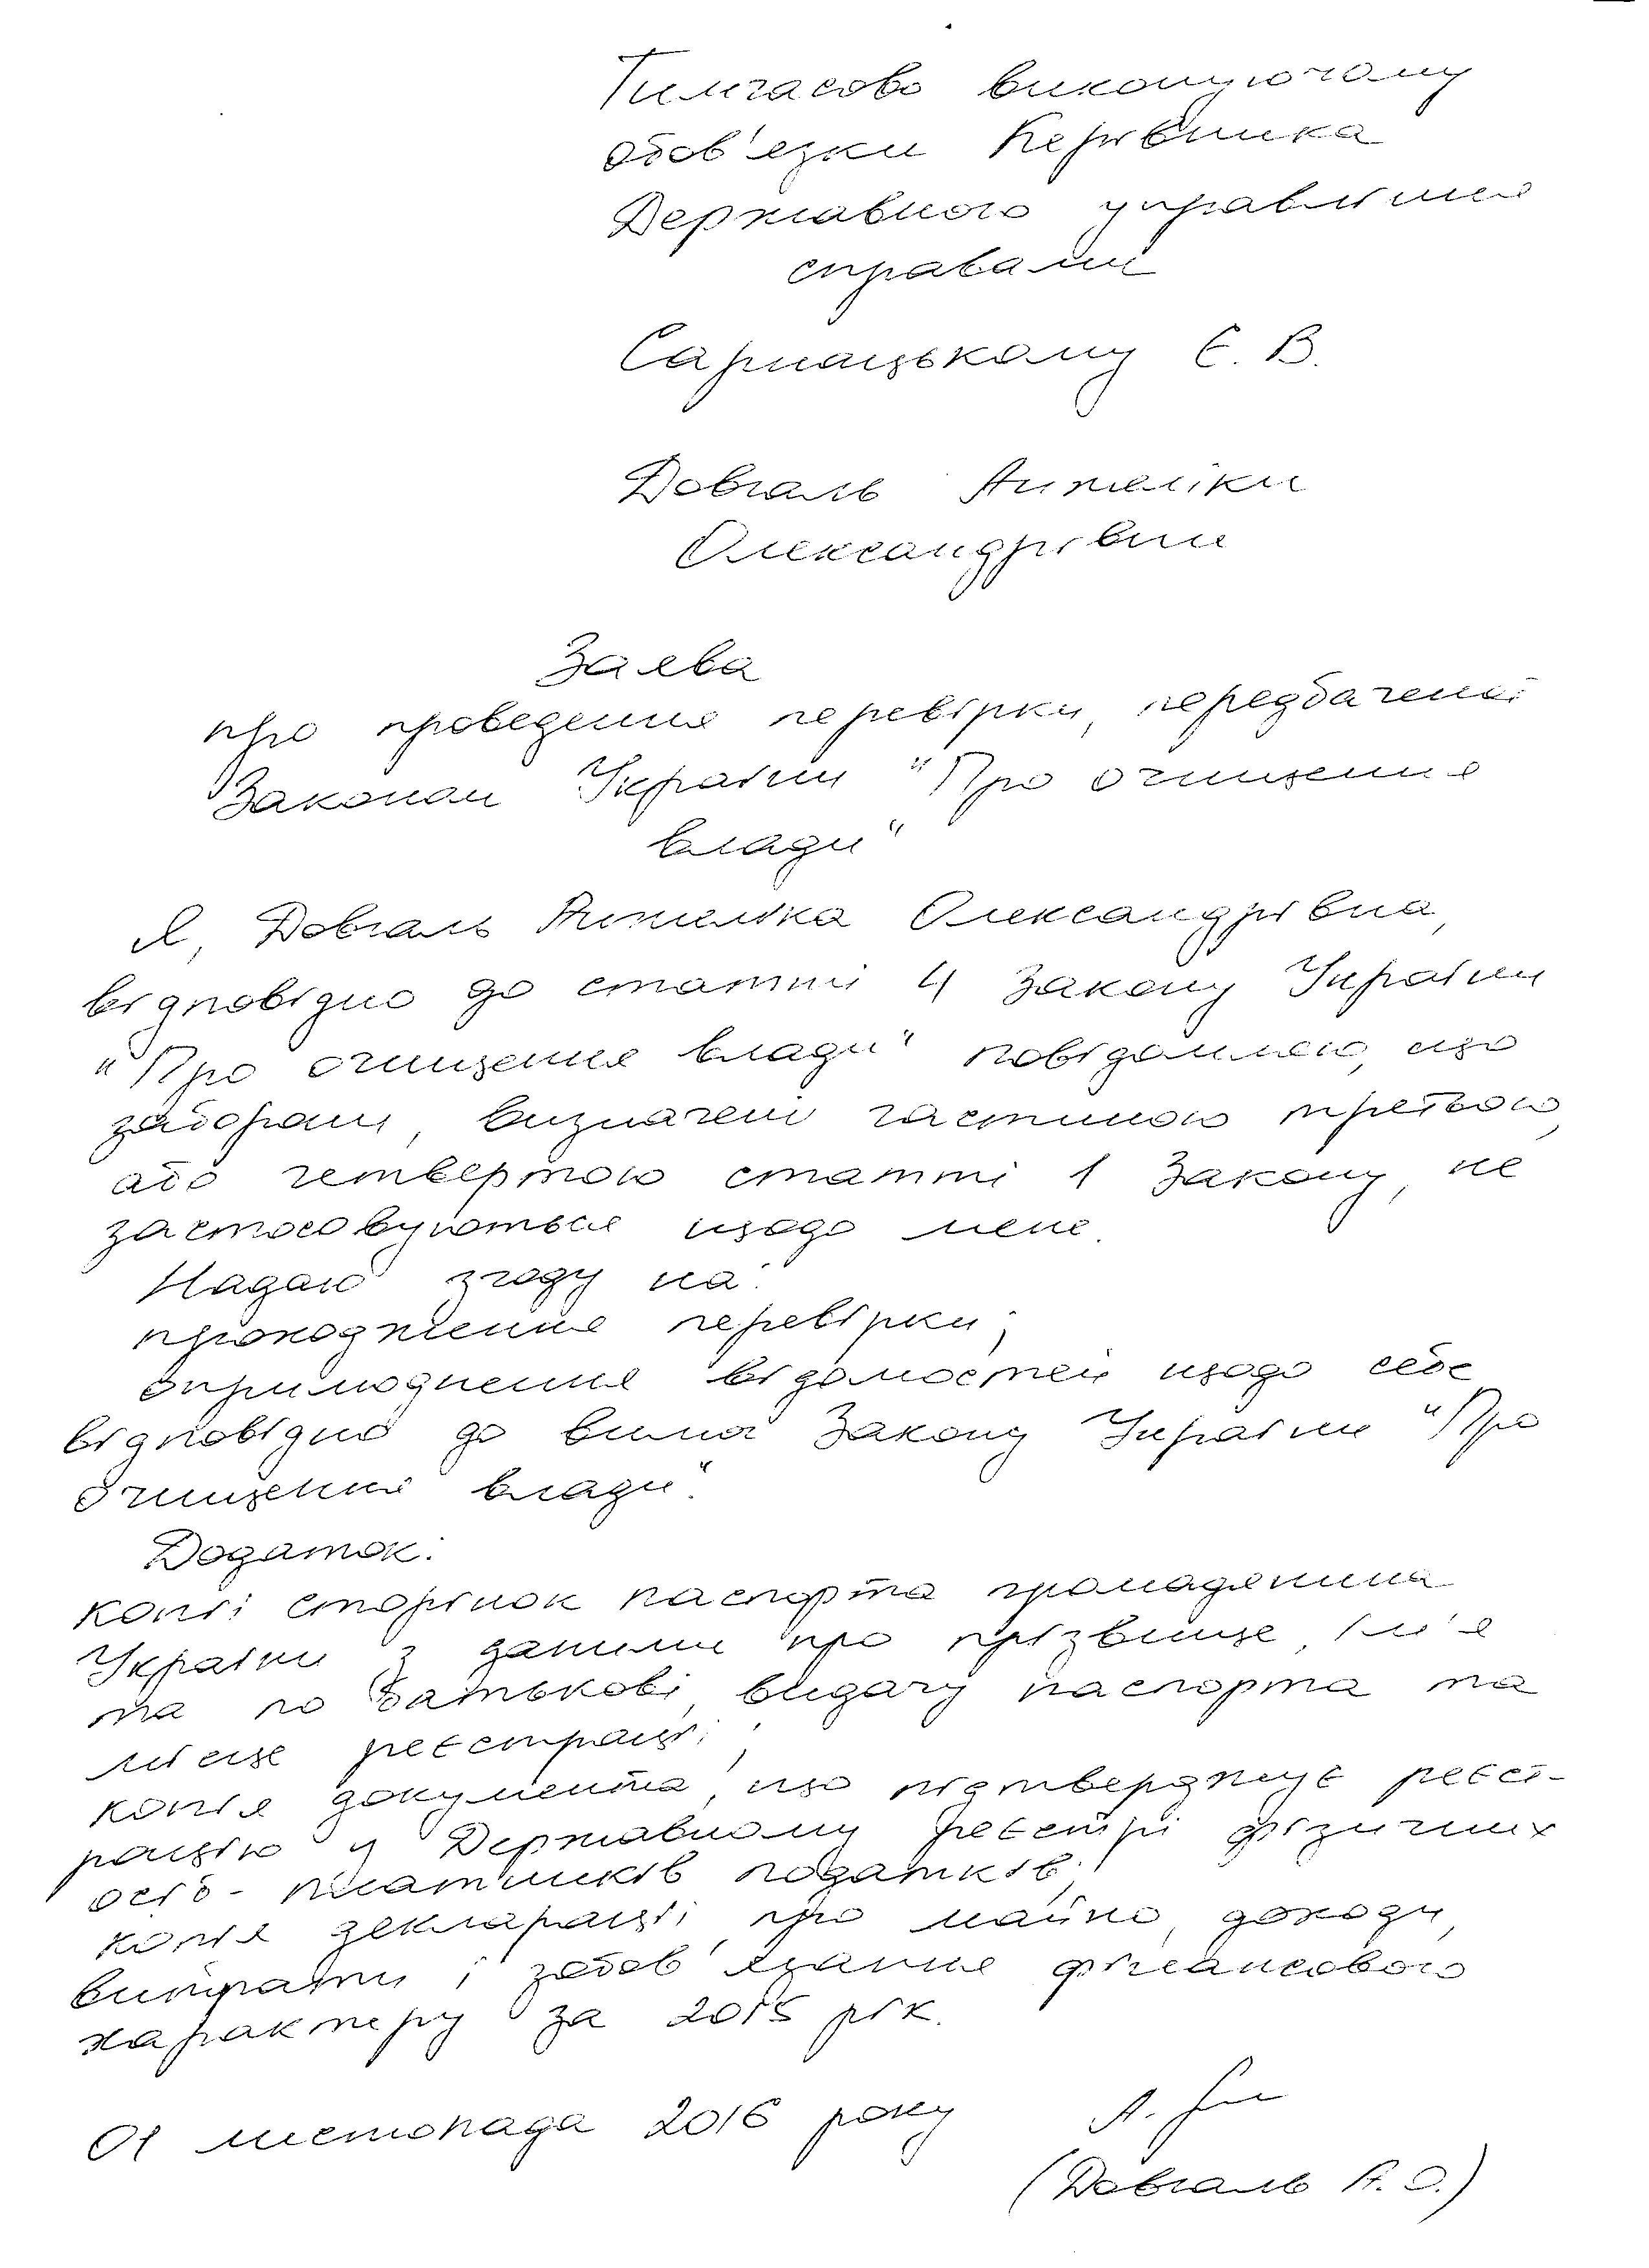 Тимчасово виконуючому
обов'язки Керівника
Державного управління
справами
Сарнацькому Є. В.
Довгаль Анжеліки
Олександрівни
Заява
про проведення перевірки, передбаченої
Законом України "Про очищення
влади"
Я, Довгаль Анжеліка Олександрівна,
відповідно до статті 4 Закону України
"Про очищення влади" повідомляю, що
заборони, визначені частиною третьою
або четвертою статті 1 Закону, не
застосовуються щодо мене.
Надаю згоду на:
проходження перевірки;
оприлюднення відомостей щодо себе
відповідно до вимог Закону України "Про
очищення влади".
Додаток:
копії сторінок паспорта громадянина
України з даними про прізвище, ім'я
та по батькові, видачу паспорта та
місце реєстрації;
копія документа, що підтверджує реєст-
рацію у Державному реєстрі фізичних
осіб - платників податків;
копія декларації про майно, доходи,
витрати і зобов'язання фінансового
характеру за 2015 рік.
01 листопада 2016 року
(Довгаль А. О.)